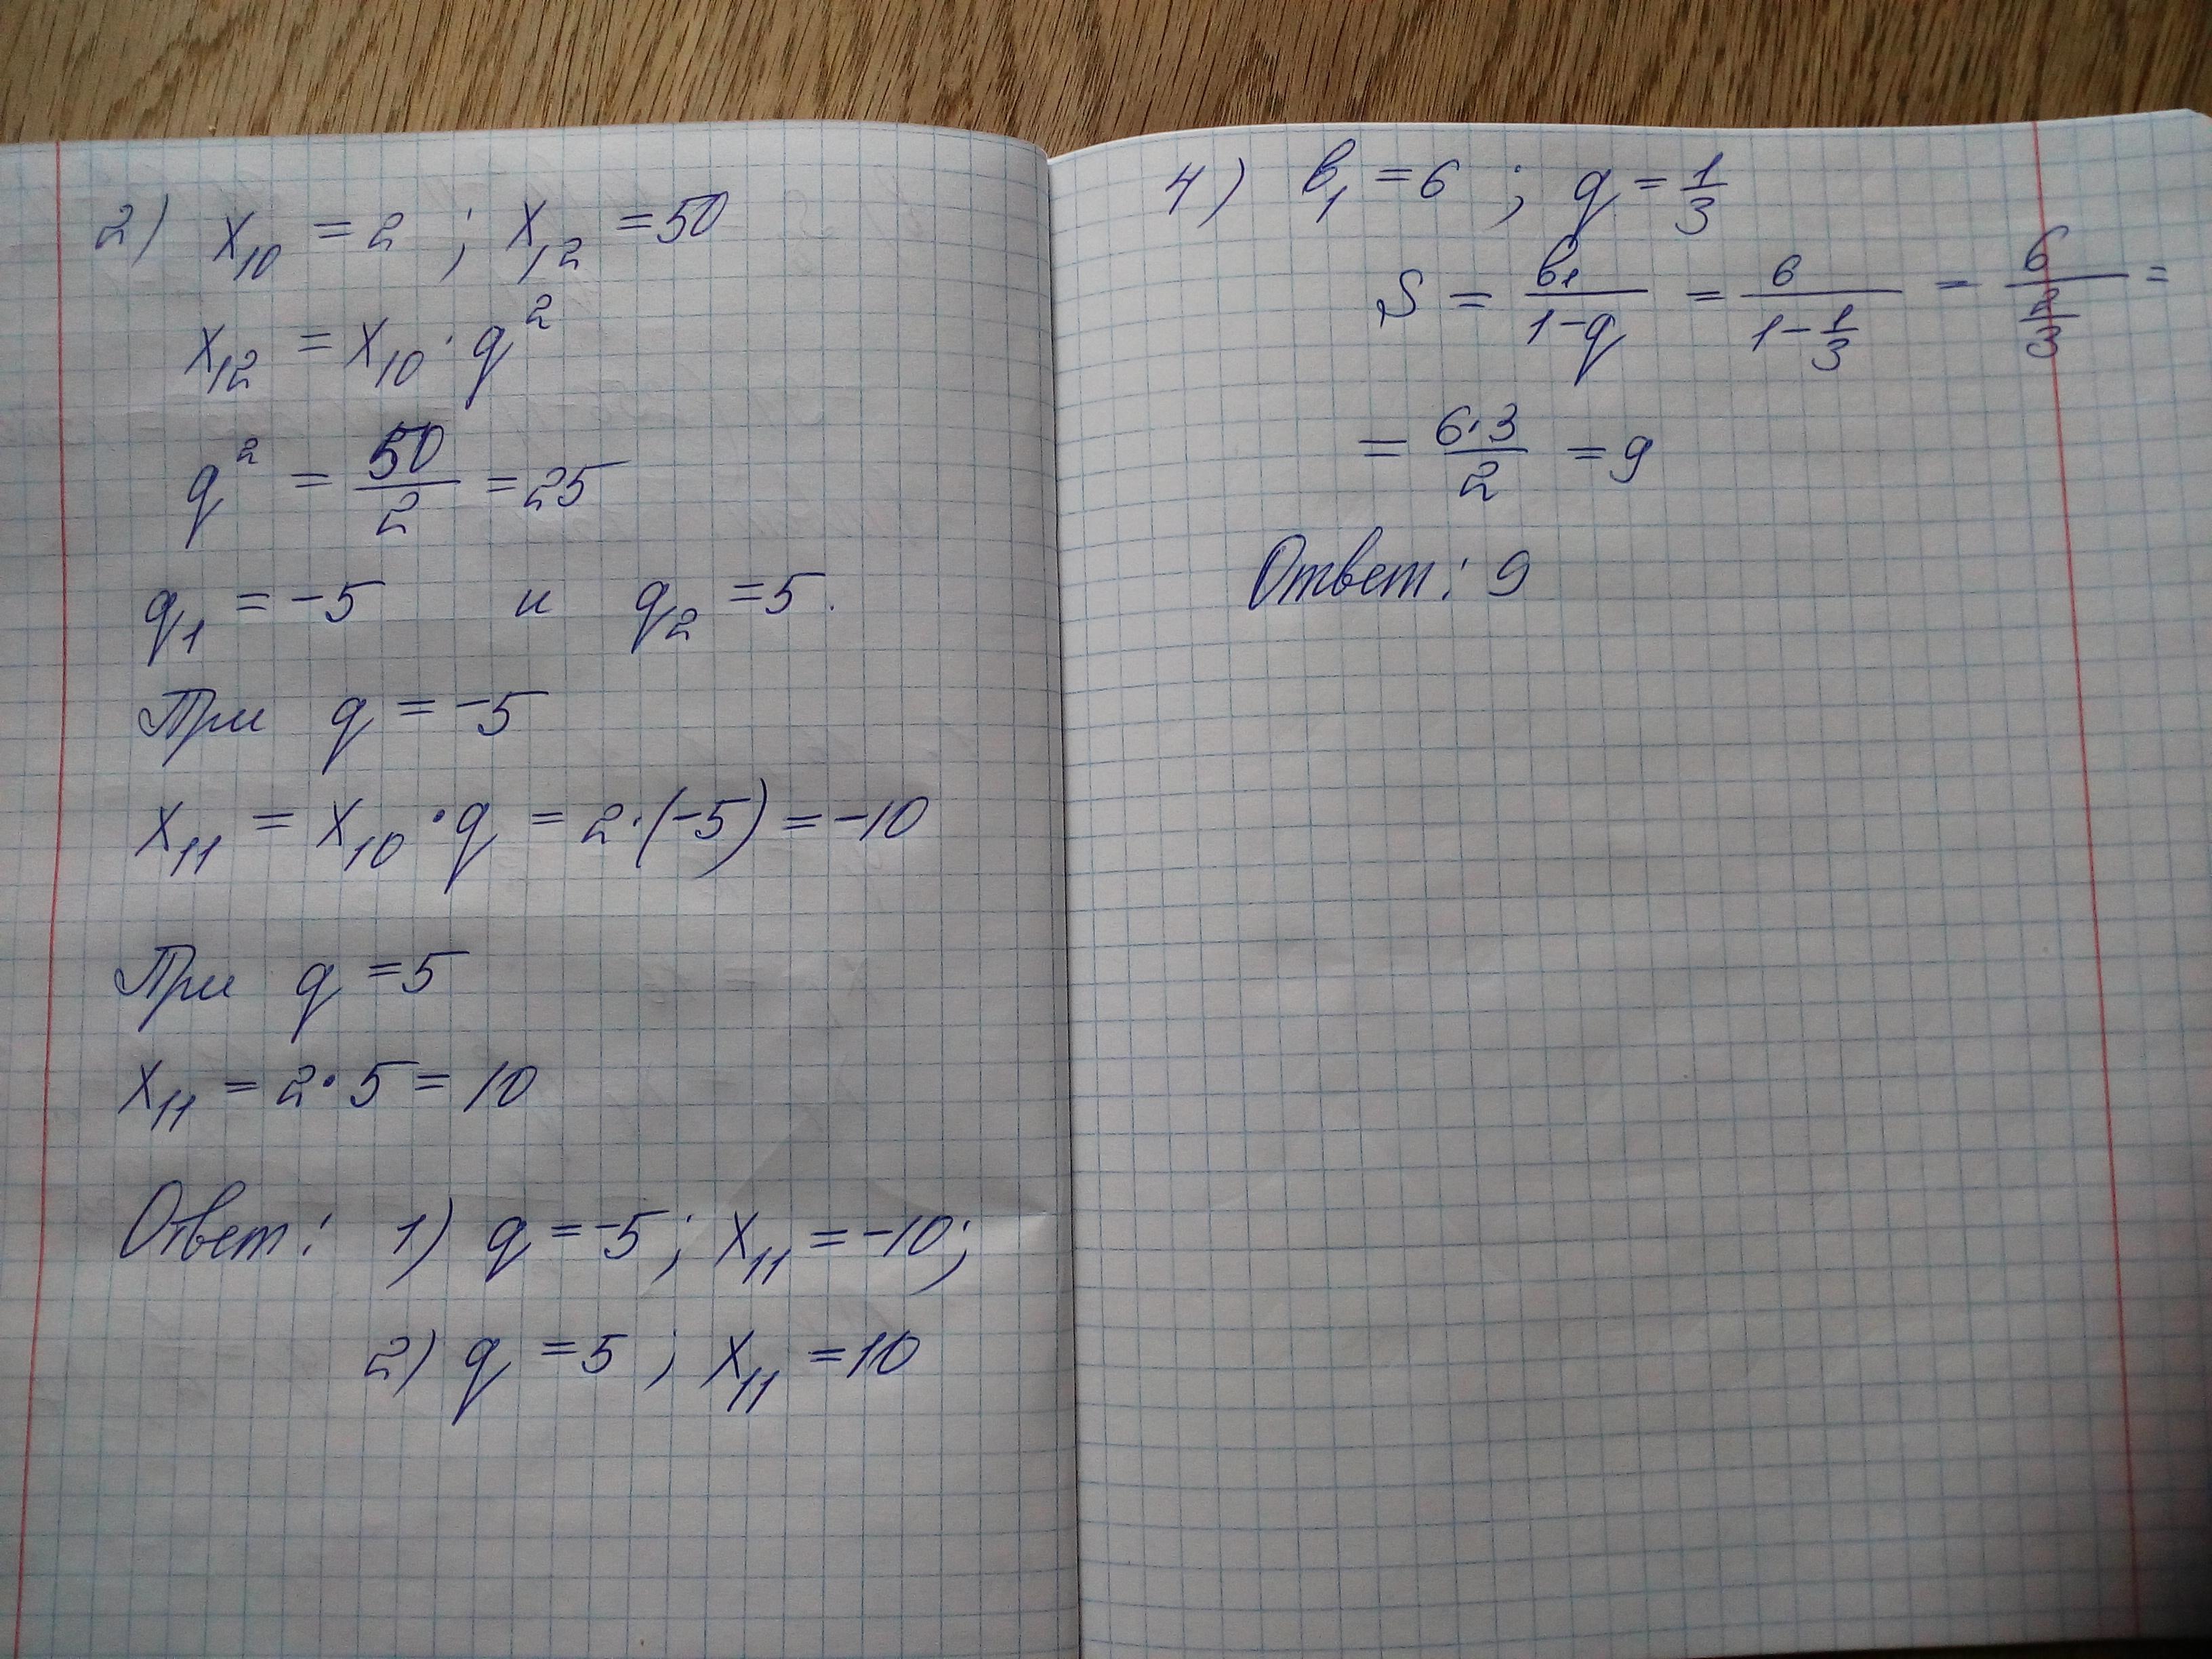 2) x₁₀ = 2 ; x₁₂ = 50
x₁₂ = x₁₀ · q²
q² = 50/2 = 25
q₁ = -5 и q₂ = 5.
При q = -5
x₁₁ = x₁₀ · q = 2 · (-5) = -10
При q = 5
x₁₁ = 2 · 5 = 10
Ответ: 1) q = -5 ; x₁₁ = -10;
2) q = 5 ; x₁₁ = 10
4) в₁ = 6 ; q = 1/3
S = в₁/(1-q) = 6/(1-1/3) = 6/(2/3) =
= 6·3/2 = 9
Ответ: 9